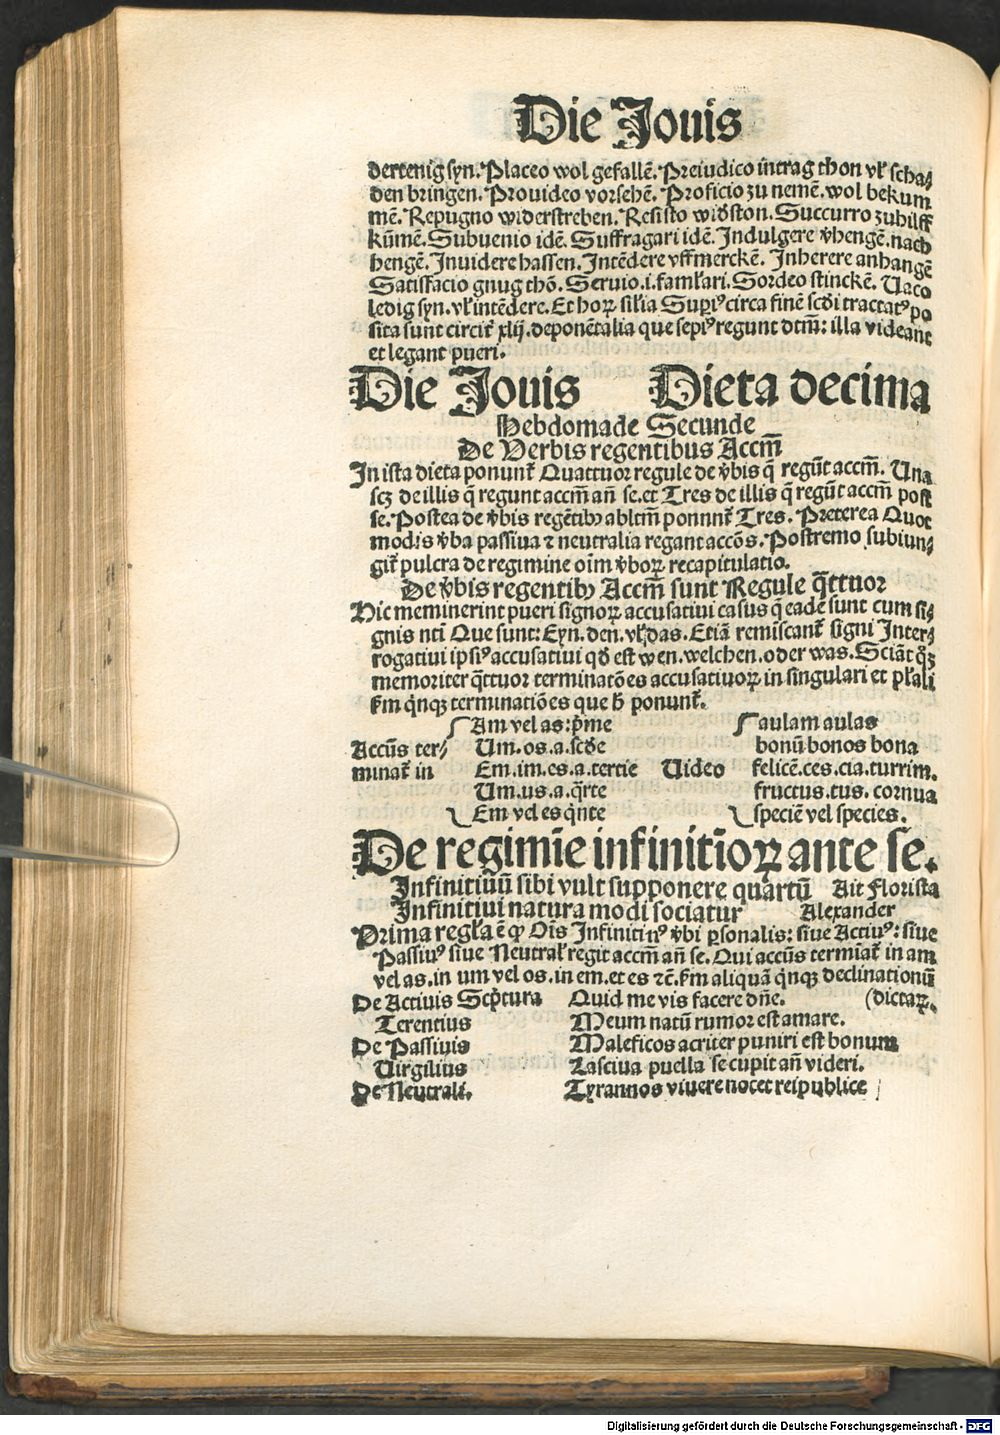 Die Jouis
dertenig syn. Placeo wol gefallē. Preiudico intrag thon vl' scha⸗
den bringen. Prouideo vorsehē. Proficio zu nemē. wol bekum
mē. Repugno widerstreben. Resisto widston. Succurro zuhilff
kūmē. Subuenio idē. Suffragari idē. Indulgere v̄hengē. nach
hengē. Inuidere hassen. Intēdere vffmerckē. Inherere anhangē
Satisfacio gnug thō. Seruio .i. faml'ari. Sordeo stinckē. Uaco
ledig syn. vl' intēdere. Et hoꝝ sil'ia Supiꝰ circa finē scd'i tractatꝰ po
sita sunt circit' xlij. deponētalia que sepiꝰ regunt dtm̄: illa videant
et legant pueri.
Die Jouis Dieta decima
Hebdomade Secunde
De Verbis regentibus Accm̄
In ista dieta ponunt' Quattuor regule de v̄bis q̄ regūt accm̄. Una
scꝫ de illis q̄ regunt accm̄ an̄ se. et Tres de illis q̄ regūt accm̄ post
se. Postea de v̄bis regētibꝰ abltm̄ ponnnt' Tres. Preterea Quot
modis v̄ba passiua ⁊ neutralia regant accōs. Postremo subiun⸗
git' pulcra de regimine oīm v̄boꝝ recapitulatio.
De v̄bis regentibꝰ Accm̄ sunt Regule q̄ttuor
Hic meminerint pueri signoꝝ accusatiui casus q̄ eadē sunt cum si⸗
gnis nti Que sunt: Eyn. den. vl' das. Etiā remiscant' signi Inter⸗
rogatiui ipsiꝰ accusatiui qd' est wen. welchen. oder was. Sciāt qꝫ
memoriter q̄ttuor terminatōes accusatiuoꝝ in singulari et pl'ali
s'm qinqꝫ terminatiōes que h̄ ponunt'.
Am vel as: p̄me aulam aulas
Accūs ter⸗ Um. os. a. scd'e bonū bonos bona
minat' in Em. im. es. a. tertie Uideo felicē. ces. cia. turrim.
Um. us. a. q̄rte fructus. tus. cornua
Em vel es qinte speciē vel species.
De regimīe infinitīoꝝ ante se.
Infinitiuū sibi vult supponere quartū Ait Florista
Infinitiui natura modi sociatur Alexander
Prima regl'a ē ꝙ Oīs Infinitiꝰ v̄bi ꝑsonalis: siue Actiuꝰ: siue
Passiuꝰ siue Neutral' regit accm̄ an̄ se. Qui accūs termiat' in am
vel as. in um vel os. in em. et es ⁊c̄. s'm aliquā qinqꝫ declinationū
De Actiuis Scp̄tura Quid me vis facere dn̄e. (dictaꝝ.
Terentius Meum natū rumor est amare.
De Passiuis Maleficos acriter puniri est bonum
Uirgilius Lasciua puella se cupit an̄ videri.
De Neutrali. Tyrannos viuere nocet reipublice
Digitalisierung gefördert durch die Deutsche Forschungsgemeinschaft - DFG